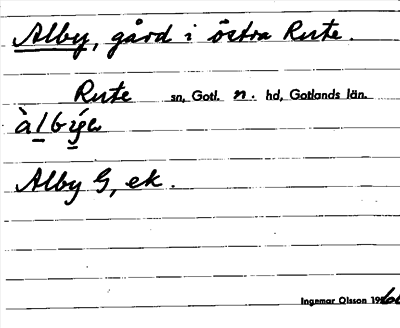 Alby, gård i östra Rute.
Rute sn, Gotl. n. hd, Gotlands län.
Alby G, ek.
Ingemar Olsson 19